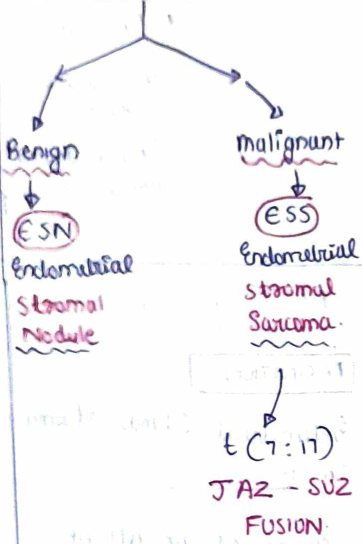 Benign
ESN
Endometrial
Stromal
Nodule
Malignant
ESS
Endometrial
Stromal
Sarcoma.
t (7:17)
JAZ - SUZ
FUSION